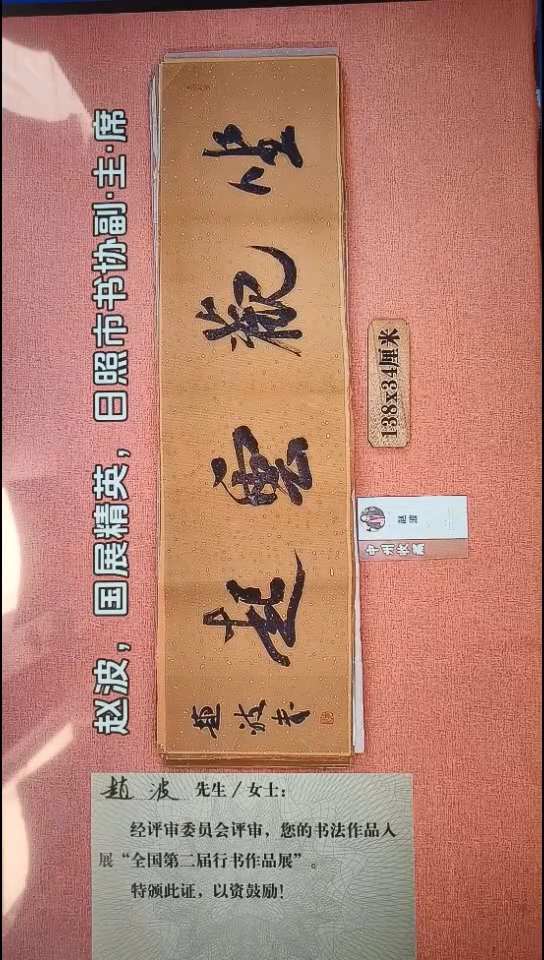 赵波，国展精英，日照市书协副·主·席
坐
觀
雲
起
趙波書
138x34厘米
赵波
中州长风
趙波 先生/女士：
经评审委员会评审，您的书法作品入
展“全国第二届行书作品展”。
特颁此证，以资鼓励！